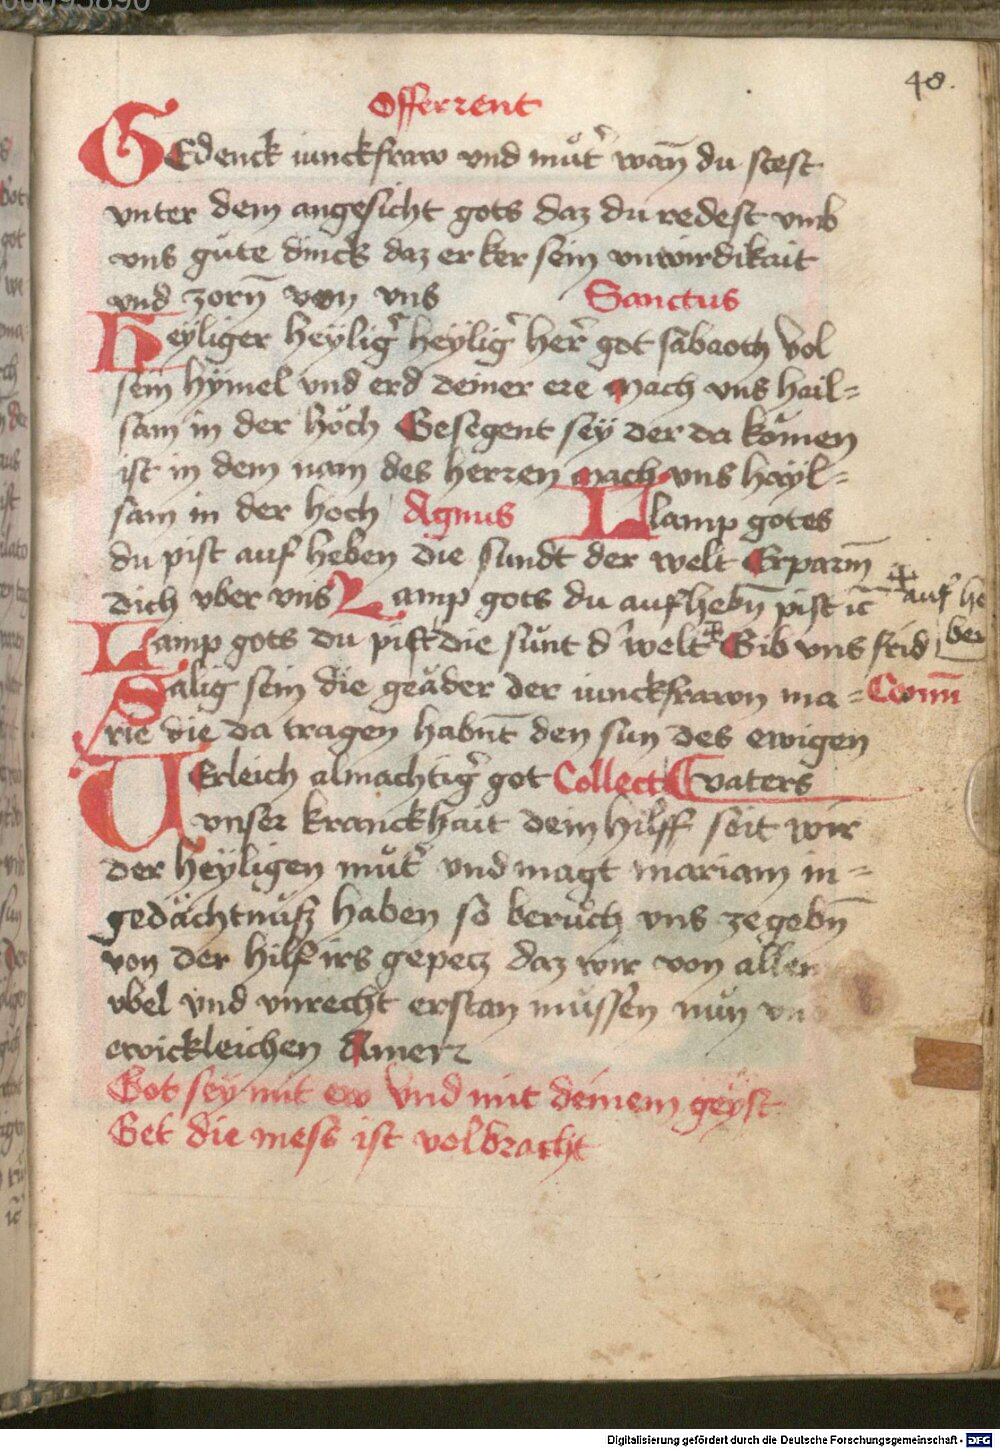 48.
Offerrent
GEdenck iunckfraw vnd muͦtr̄ wan̄ du stest
vnter dem angesicht gots daz du redest vmb
vns gute dinck daz er ker sein vnwirdikait
vnd zorn̄ von vns Sanctus
Heyliger heÿligr̄ heÿligr̄ her̄ got sabaoth vol
sein hÿmel vnd erd deiner ere Mach vns hail=
sam in der hoͤch Gesegent seÿ der da komen
ist in dem nam des herren mach vns hayl=
sam in der hoch Agnus Llamp gotes
du pist auf heben die sundt der welt Erparm̄
dich vber vns Lamp gots du aufhebn̄ pist ic̄
Lamp gots du pist die suͤnt d welt Gib vns frid
auf he
ben
Salig sein die geaͤder der iunckfrawn ma= Comū
rie die da tragen habnt̄ den sun des ewigen
VErleich almachtigr̄ got Collect vaters
vnser kranckhait dein hilff seit wir
der heÿligen muͦtr̄ vnd magt mariam in=
gedaͤchtnuͤß haben so beruͦch vns ze gebn̄
von der hilf irs gepetz daz wir von allen
vbel vnd vnrecht erstan muͤssen nuͦn vn
ewickleichen Amen
Got seÿ mit ew vnd mit deinem geÿst
Get die mess ist volbracht
Digitalisierung gefördert durch die Deutsche Forschungsgemeinschaft - DFG